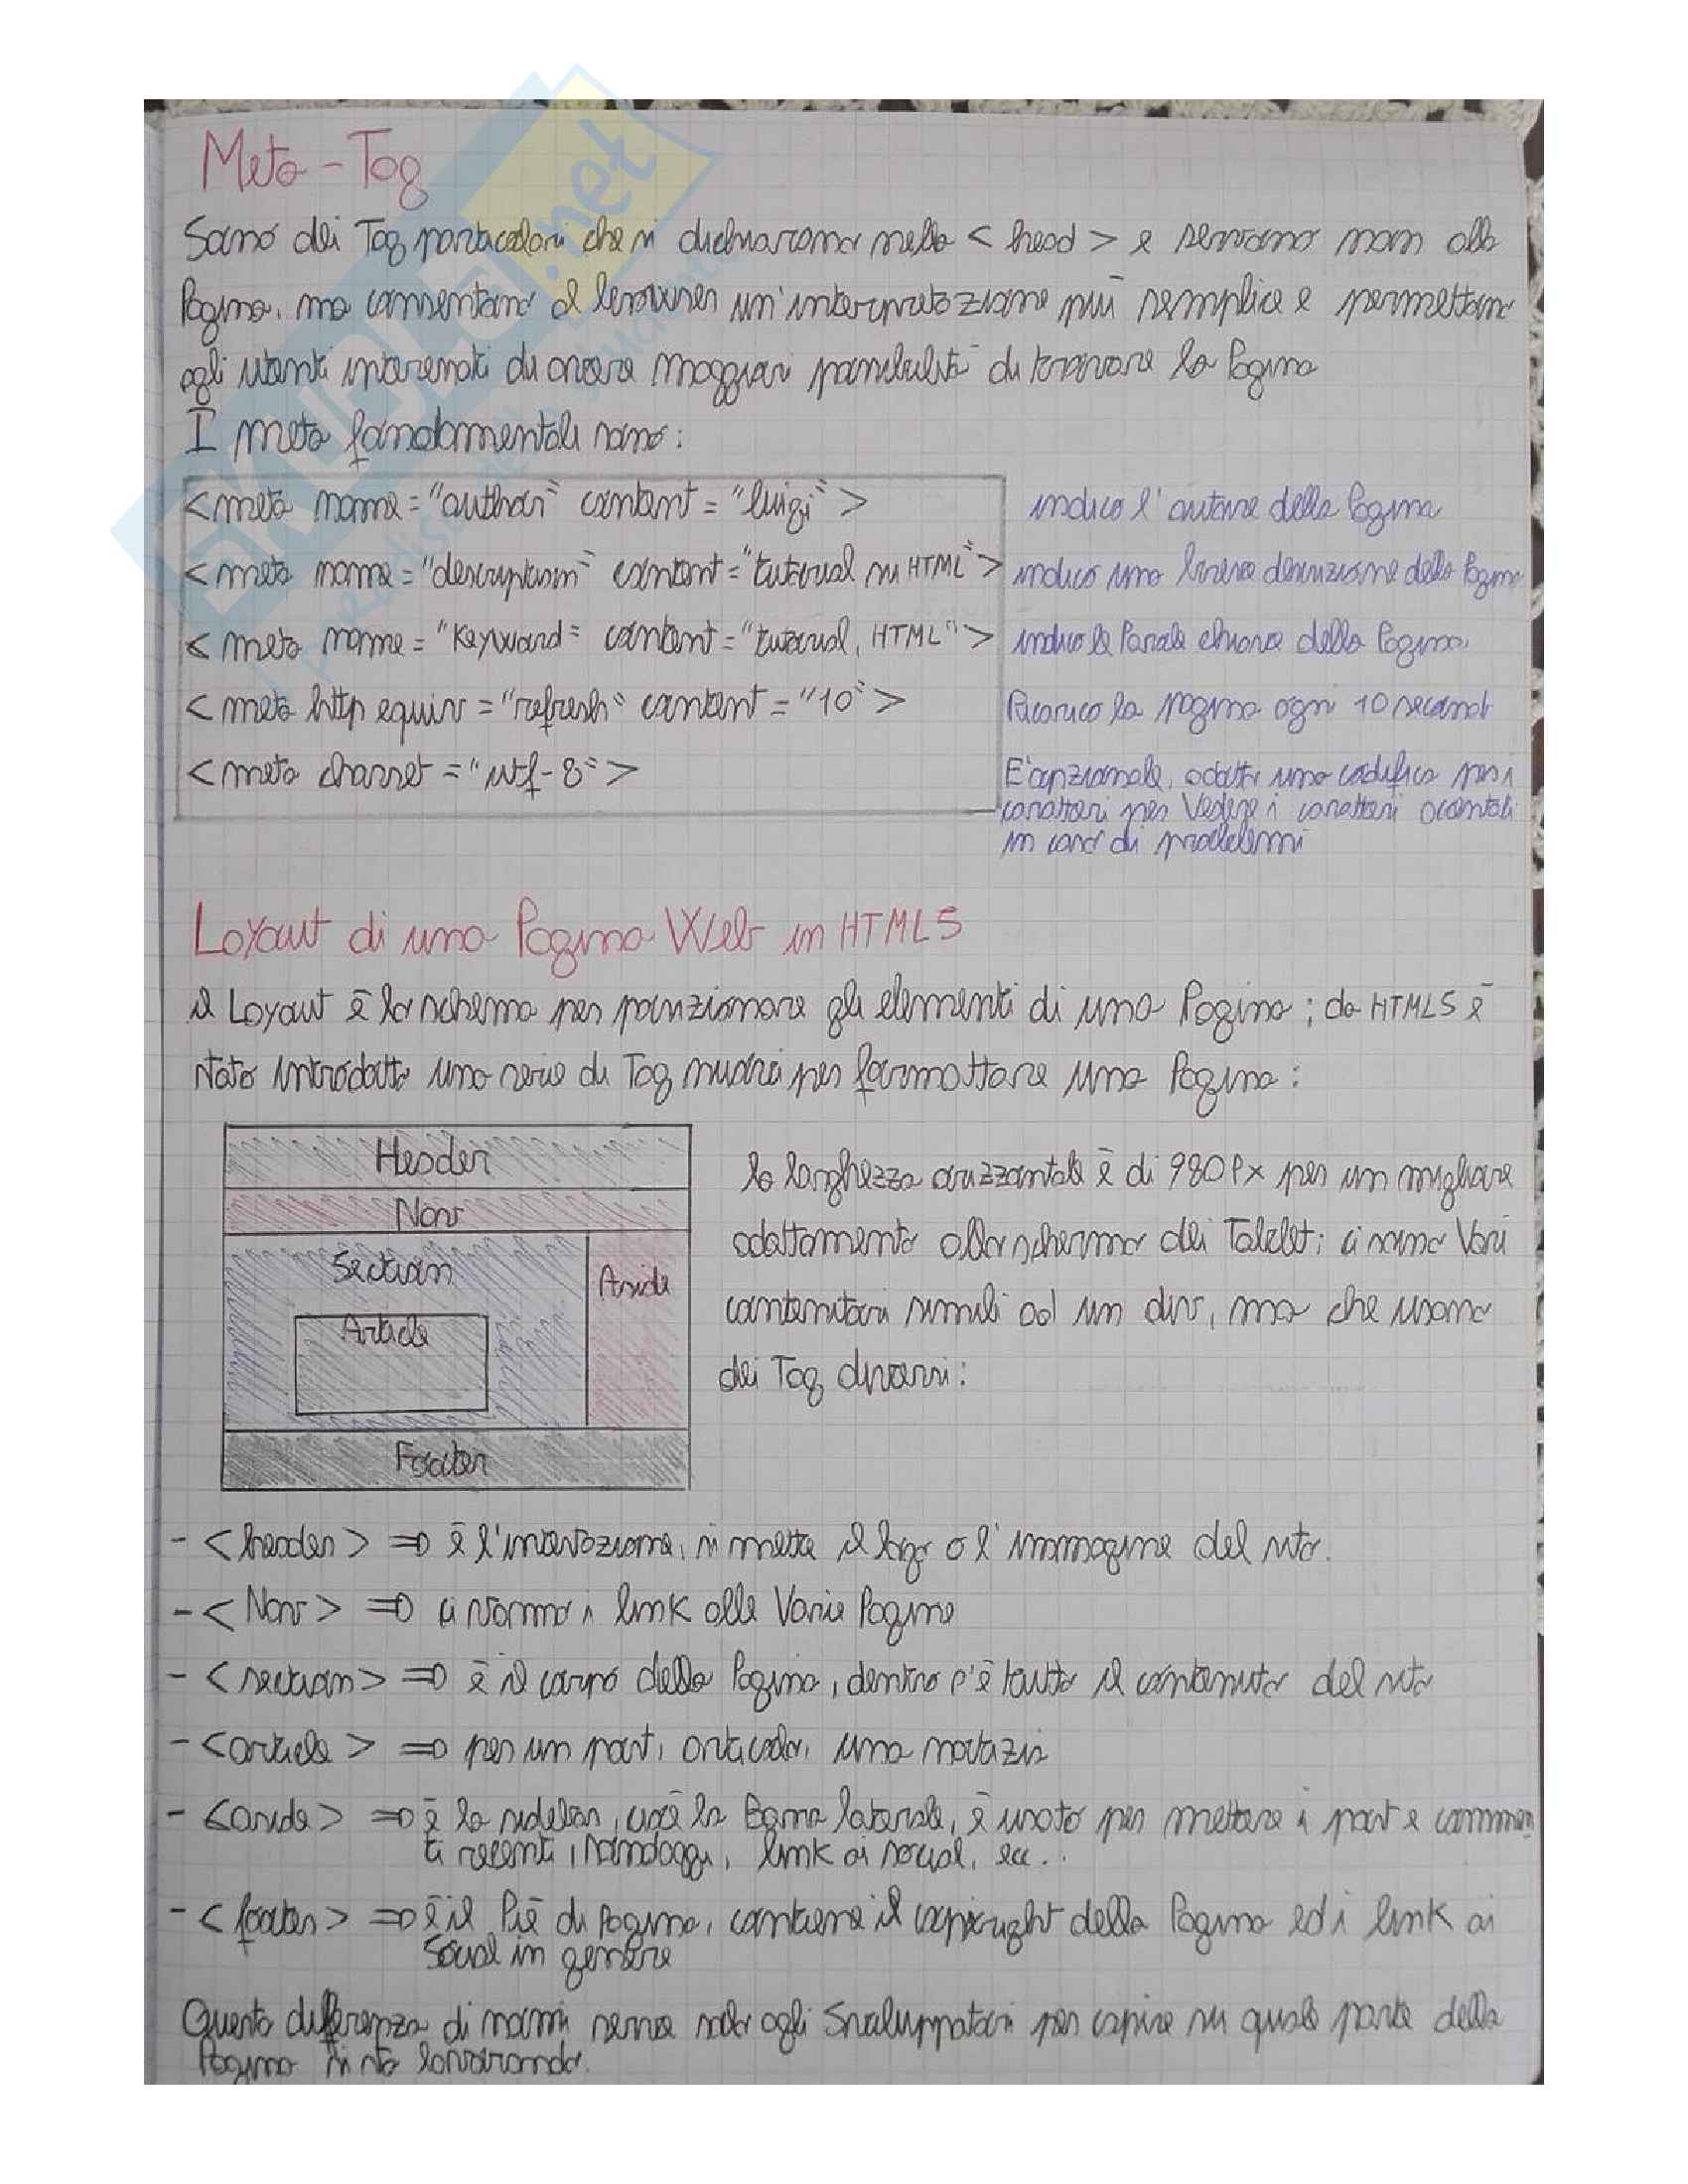 Meta-Tag
Sono dei Tag particolari che si dichiarano nella <head> e servono non alla
Pagina, ma consentono al browser un'interpretazione più semplice e permettono
agli utenti interessati di avere maggiori possibilità di trovare la Pagina
I meta fondamentali sono:
<meta name="author" content="luigi"> indica l'autore della Pagina
<meta name="description" content="tutorial su HTML"> indica una breve descrizione della Pagina
<meta name="Keyword" content="tutorial, HTML"> indica le Parole chiave della Pagina.
<meta http equiv="refresh" content="10"> Ricarica la pagina ogni 10 secondi
<meta charset="utf-8"> E' opzionale, adatta una codifica per i
caratteri per Vedere i caratteri accentati
in caso di problemi
Layout di una Pagina Web in HTML5
il Layout è lo schema per posizionare gli elementi di una Pagina; da HTML5 è
stato introdotto una serie di Tag nuovi per formattare una Pagina:
Header
Nav
Section
Aside
Article
Footer
la larghezza orizzontale è di 980Px per un migliore
adattamento allo schermo dei Tablet; ci sono Vari
contenitori simili ad un div, ma che usano
dei Tag diversi:
- <header> => è l'intestazione, si mette il logo o l'immagine del sito.
- <Nav> => ci vanno i link alle Varie Pagine
- <section> => è il corpo della Pagina, dentro c'è tutto il contenuto del sito
- <article> => per un post, articolo, una notizia
- <aside> => è la sidebar, cioè la Barra laterale, è usato per mettere i post e commen
ti recenti, sondaggi, link ai social, ecc..
- <footer> => è il Piè di Pagina, contiene il copyright della Pagina ed i link ai
Social in genere
Questa differenza di nomi serve solo agli Sviluppatori per capire su quale parte della
Pagina si sta lavorando.
SKUOLA.net